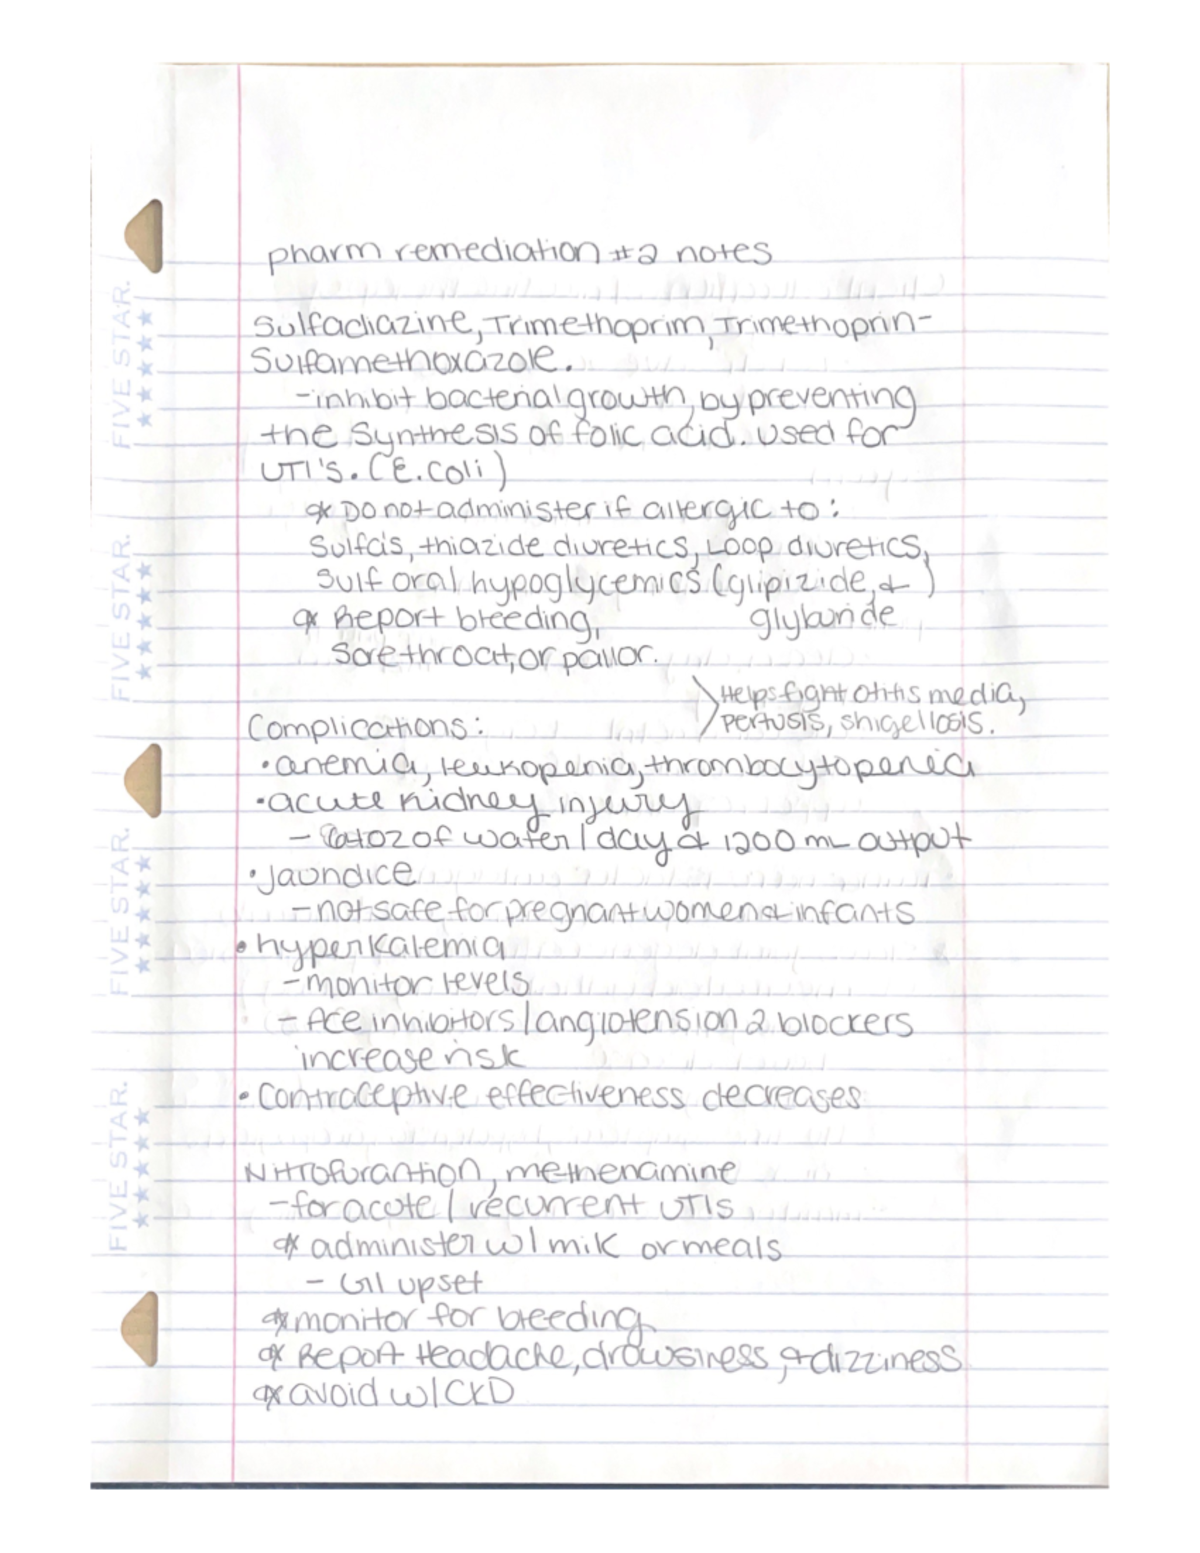 pharm remediation #2 notes
Sulfadiazine, Trimethoprim, Trimethoprin-
Sulfamethoxazole.
-inhibit bacterial growth, by preventing
the synthesis of folic acid. used for
UTI's. (E. coli)
* Do not administer if allergic to:
Sulfa's, thiazide diuretics, Loop diuretics,
sulf oral hypoglycemics (glipizide, & )
glyburide
* Report bleeding,
Sore throat, or pallor.
>Helps fight otitis media,
pertusis, shigellosis.
Complications:
•anemia, leukopenia, thrombocytopenia
•acute kidney injury
- 64oz of water/day & 1200 mL output
•Jaundice
-not safe for pregnant women & infants
•hyperkalemia
-monitor levels
- Ace inhibitors/angiotension 2 blockers
increase risk
• Contraceptive effectiveness decreases
Nitrofurantion, methenamine
-for acute / recurrent UTIs
* administer w/ milk or meals
- GI upset
*monitor for bleeding
* Report Headache, drowsiness, & dizziness
*avoid w/ CKD
FIVE STAR.
FIVE STAR.
FIVE STAR.
FIVE STAR.